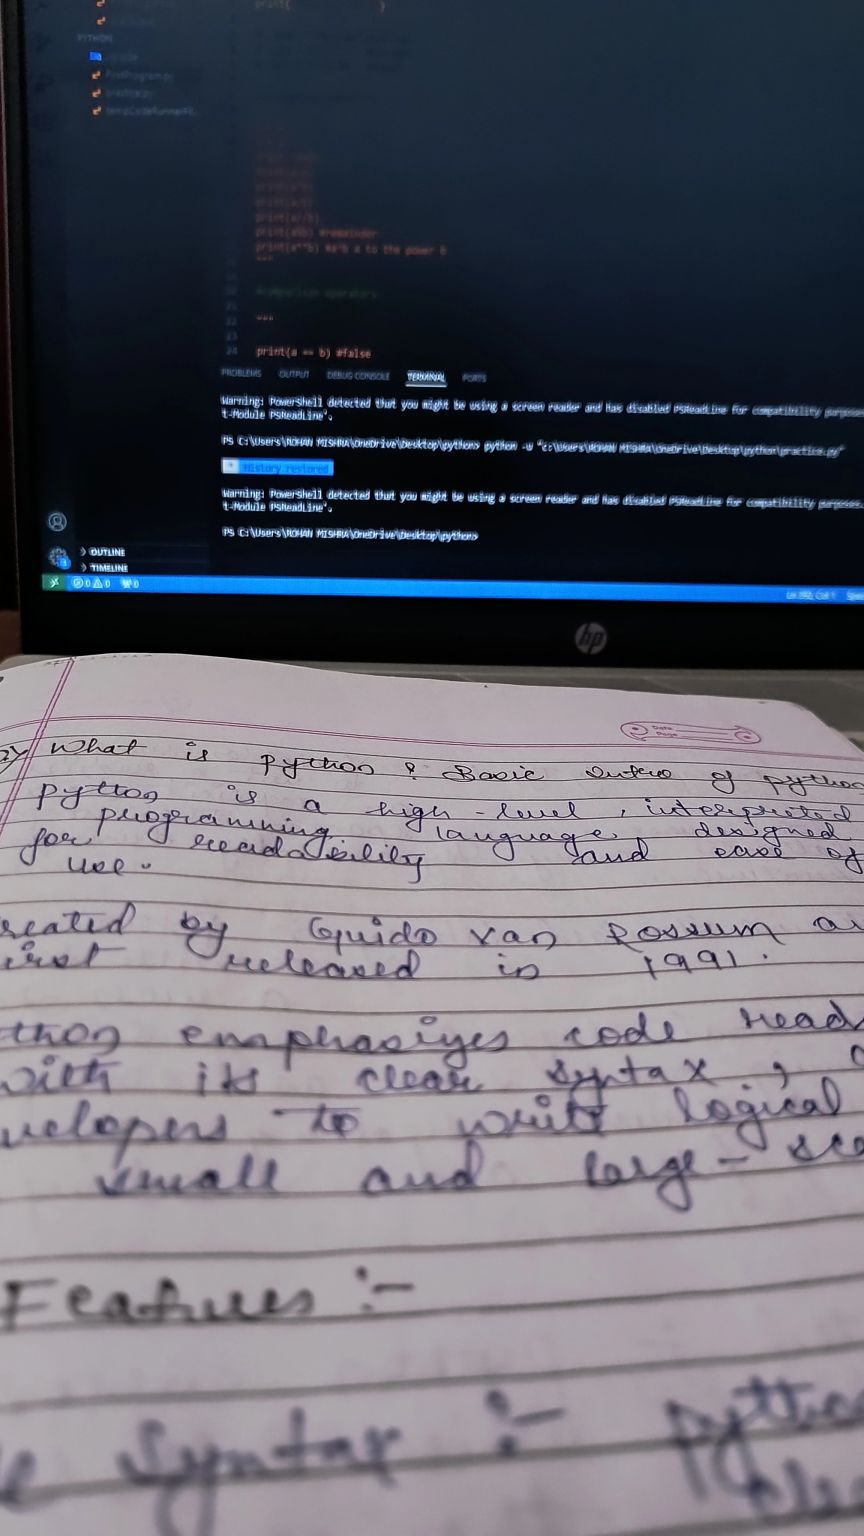 print( )
PYTHON
FirstProgram.py
practice.py
print(a//b)
print(a%b) #remainder
print(a**b) #a^b a to the power b
"""
20
#comparison operators
21
22 """
23
24 print(a == b) #false
PROBLEMS OUTPUT DEBUG CONSOLE TERMINAL PORTS
Warning: PowerShell detected that you might be using a screen reader and has disabled PSReadLine for compatibility purposes
t-Module PSReadLine'.
PS C:\Users\ROHAN MISHRA\OneDrive\Desktop\python> python -u "c:\Users\ROHAN MISHRA\OneDrive\Desktop\python\practice.py"
* History restored
Warning: PowerShell detected that you might be using a screen reader and has disabled PSReadLine for compatibility purposes.
t-Module PSReadLine'.
PS C:\Users\ROHAN MISHRA\OneDrive\Desktop\python>
> OUTLINE
> TIMELINE
0 0 0
hp
Date
Page
What is python? Basic Intro of python
python is a high-level, interpreted
programming language, designed
for readability and ease of
use.
reated by Guido van Rossum a
irst released in 1991.
thon emphasizes code read
with its clear syntax,
velopers to write logical
small and large-sca
Features :-
Syntax :- pytho